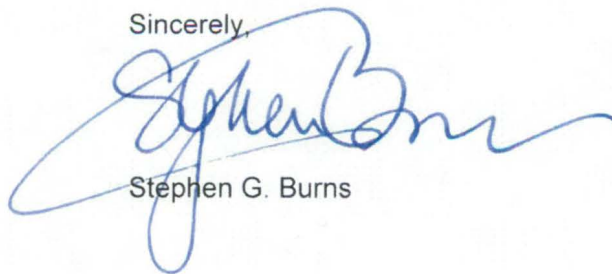 Sincerely,
Stephen Burns
Stephen G. Burns